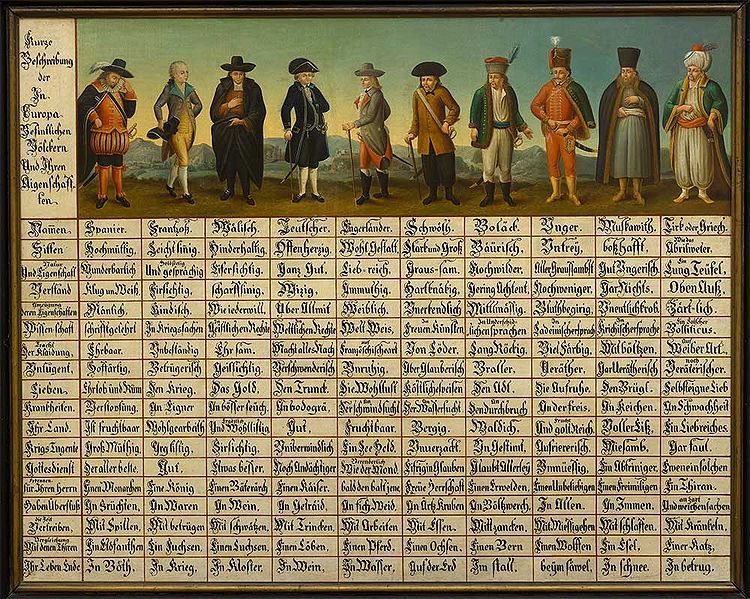 Kurze
Beschreibung
der
In
Europa
Befintlichen
Völckern
Und Ihren
Aigenschaff-
ten.
Namen. Spanier. Frantzoß. Wälisch. Teutscher. Engerländer. Schwöth. Boläck. Unger. Muskawith. Tirk oder Griech.
Sitten Hochmüttig, Leichtsinig. Hinderhaltig. Offenherzig, Wohl Gestalt, Starck und Groß Bäurisch, Untrey, boßhafft. Wie das Abrilweter.
Natur Und Eigenschaft Wunderbarlich Holdseelig Und gesprächig Eifersichtig. Ganz Gut, Lieb-reich, Graus-sam, Hochwilder, Aller Graussambst Gut Ungerisch, Ein Lung Teüfel.
Verstand Klug un Weiß, Firsichtig, scharffsinig, Wizig, Anmuthig, Hartknäbig, Gering Achtent, Nochweniger, Gar Nichts. Oben Auß,
Anzeigung deren Eigenschaften Mänlich, Kindisch, Wie ierwill, Über Allmit Weiblich, Unerkendlich Mittlmässig, Bluthbegirig, Unentlichkrob Zärt-lich.
Wissenschaft schrifftgelehrt In Kriegssachen Geistlichen Rechte Weltlichen Rechte Welt Weis, Freuen Künsten In Underschidlichen sprachen In Ladeinischersprach Krichischersprache Ein Falscher Bolliticus.
Tracht Der Klaidung, Ehrbaar, Unbeständig Ehrsam, Macht alles Nach Französischeart Von Löder, Lang Röckig, Viel Färbig, Mit böltzen, Auf Weiber Art,
Untugent, Hoffärtig, Betrügerisch Geillsichtig, Verschwenderisch Unruhig, Über Glauberisch Braller, Veräther, Gar Verätherisch noch Verätherischer,
Lieben, Ehrlob und Rüm Den Krieg, Das Gold, Den Trunck, Die Wohllust Köstlichespeisen Den Adl, Die Aufruhe, Den Brügl, Selbsteigne Lieb
Krankheiten, Verstopfung, An Eigner An bösser seüch, An bodogrä, Der schwindsucht Der Wassersucht, Den Durchbruch An der freis, An Keichen, An Schwachheit
Ihr Land, Ist fruchtbaar Wohlgearbeith Und Wohllistig Gut, Fruchtbaar, Bergig, Waldich, und gollt Reich, Voller Eiß, Ein Liebreiches,
Krigs Tugente Groß Müthig, Arglistig, Firsichtig, Uniberwindlich Ein See Held, Unverzackt, Un Gestimt, Aufrierisch, Miesamb, Gar faul,
Gottesdienst Der aller beste, Gut, Etwas besser, Noch Andächtiger Wie der Mond, Eifrig in Glauben Glaubt Allerley Unmüessig, Ein Abtriniger, Eweneinsolchen
Erkennen für Ihren herrn Einen Monarchen Eine König Einen Bäterärch Einen Kaiser, bald den balt jene Freüe Herrschaft Einen Erwelden, Einen Unbeliebigen Einen Freimilligen Ein Thiran,
Haben Uberfluß In Früchten, An Waren In Wein, An Getraid, An fich Weid, An Ärtz Kruben An Böltzwerch, In Allen, In Immen, an zart Und weichen sachen
die Zeit Vertreiben, Mit Spillen, Mit betrügen Mit schwätzen, Mit Trincken, Mit Arbeiten Mit Essen, Mitt zancken, Mit Miessigehen Mit schlaffen, Mit Kränkeln,
Vergleichung Mit denen Thiren Ein Elofanthen Ein Fuchsen, Einen Luchsen, Einen Löben, Einen Pferd, Einen Ochsen, Einen Bern Einen Wolffen Ein Esel, Einer Katz,
Ihr Leben Ende In Böth, In Krieg, In Kloster, In Wein, In Wasser, Auf der Erd Im stall, beym säwel, In schnee, In betrug,